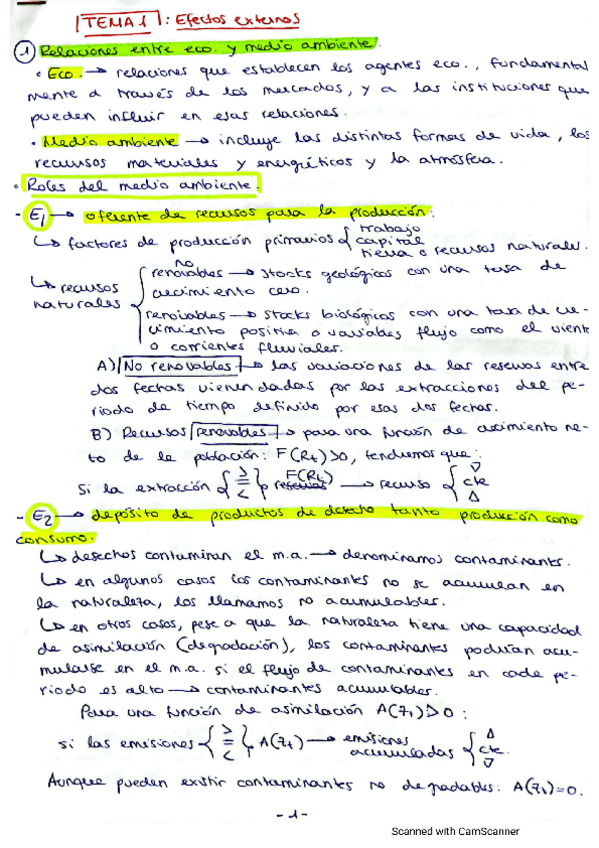 TEMA 1: Efectos externos
1 Relaciones entre eco. y medio ambiente.
• Eco. → relaciones que establecen los agentes eco., fundamental
mente a través de los mercados, y a las instituciones que
pueden influir en esas relaciones.
• Medio ambiente → incluye las distintas formas de vida, los
recursos materiales y energéticos y la atmósfera.
• Roles del medio ambiente.
- E1 → oferente de recursos para la producción:
↳ factores de producción primarios { trabajo
capital
tierra o recursos naturales.
↳ recursos naturales {
no renovables → stocks geológicos con una tasa de
crecimiento cero.
renovables → stocks biológicos con una tasa de cre-
cimiento positiva o variables flujo como el viento
o corrientes fluviales.
A) No renovables → las variaciones de las reservas entre
dos fechas vienen dadas por las extracciones del pe-
riodo de tiempo definido por esas dos fechas.
B) Recursos renovables → para una función de crecimiento ne-
to de la población: F(Rt)>0, tendremos que:
Si la extracción { > = < } F(Rt) → recurso { ∇ cte Δ
- E2 → depósito de productos de desecho tanto producción como
consumo.
↳ desechos contaminan el m.a. → denominamos contaminantes.
↳ en algunos casos los contaminantes no se acumulan en
la naturaleza, los llamamos no acumulables.
↳ en otros casos, pese a que la naturaleza tiene una capacidad
de asimilación (degradación), los contaminantes podrían acu-
mularse en el m.a. si el flujo de contaminantes en cada pe-
riodo es alto → contaminantes acumulables.
Para una función de asimilación A(Zt)>0:
si las emisiones { > = < } A(Zt) → emisiones acumuladas { Δ cte. ∇
Aunque pueden existir contaminantes no degradables: A(Zt)=0.
- 1 -
Scanned with CamScanner